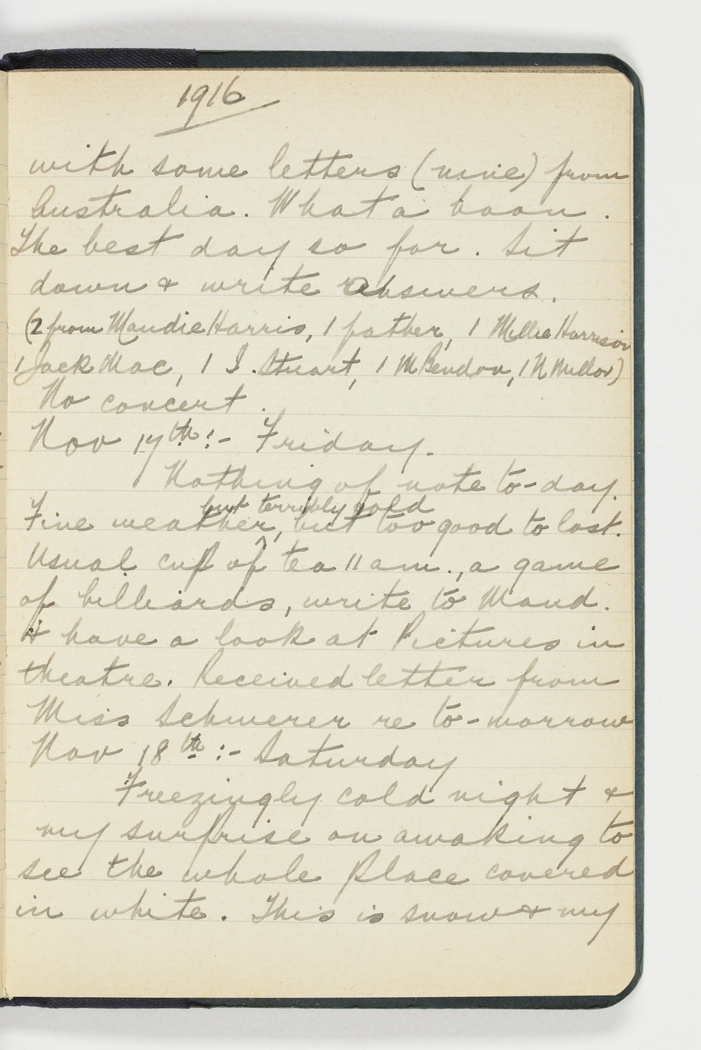 1916
with some letters (nine) from
Australia. What a boon.
The best day so far. Sit
down & write answers.
(2 from Maudie Harris, 1 father, 1 Millie Harrison
1 Jack Mac, 1 I. Stuart, 1 M Bendon, 1 N Mellor)
No concert.
Nov 17th:- Friday.
Nothing of note to-day.
but terribly cold
Fine weather, but too good to last.
Usual cup of tea 11 am., a game
of billiards, write to Maud.
& have a look at Pictures in
theatre. Received letter from
Miss Schwerer re to-morrow
Nov 18th:- Saturday
Freezingly cold night &
my surprise on awaking to
see the whole place covered
in white. This is snow & my